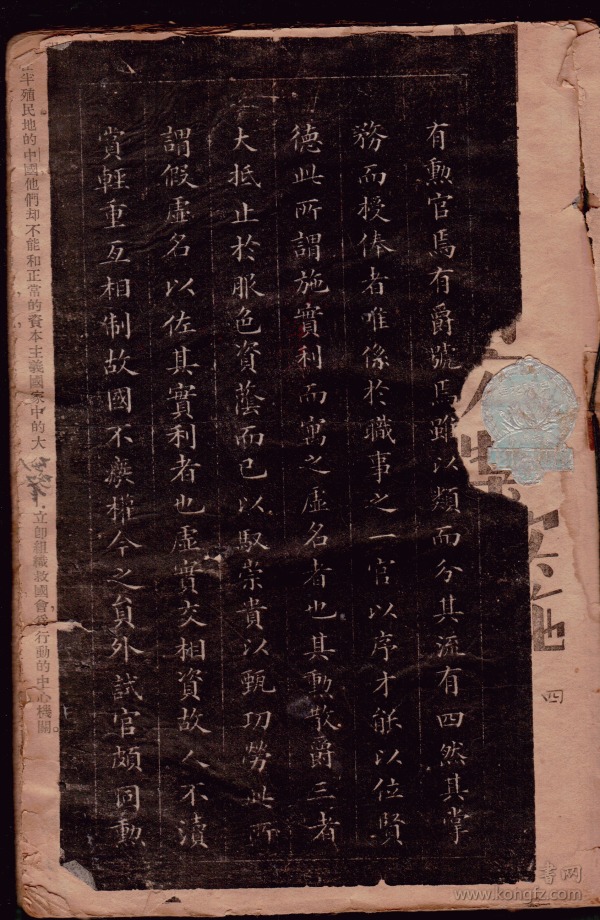 有勲官焉有爵號焉雖以類而分其流有四然其掌
務而授俸者唯係於職事之一官以序才能以位賢
德此所謂施實利而寓之虚名者也其勳散爵三者
大抵止於服色資蔭而已以馭崇貴以甄功勞此所
謂假虚名以佐其實利者也虚實交相資故人不瀆
賞輕重互相制故國不廢權今之員外試官頗同勲
半殖民地的中國他們却不能和正常的資本主義國家中的大
立即組織救國會爲行動的中心機關。
四
書网
www.kongfz.com